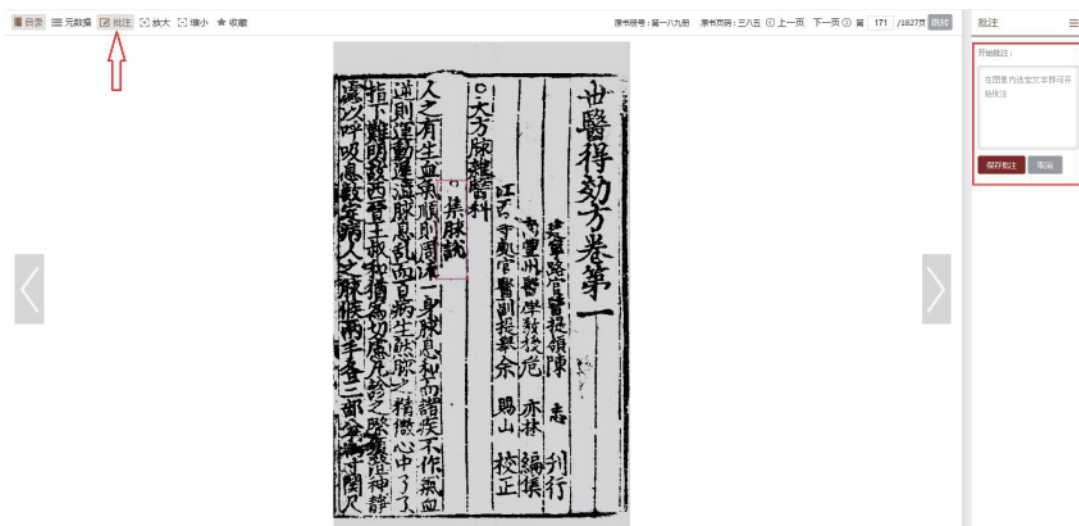 目录 元数据 批注 放大 缩小 收藏
原书册号：第一八九册 原书页码：三八五 上一页 下一页 第 171 /1827页 跳转
批注
开始批注：
在图像内选定文字即可开始批注
保存批注 取消
世醫得効方卷第一
建寧路官醫提領陳 志 刊行
南豐州醫學教授危 亦林 編集
江西官醫副提舉余 賜山 校正
○大方脉雜醫科
○集脉說
人之有生血氣順則周流一身脉息和而諸疾不作氣血
逆則運動遲澁脉息乱而百病生然脉之精微心中了了
指下難明故西晉王叔和猶為切慮凡診之際神靜
慮以呼吸息數定病人之脉候兩手各三部分為寸關尺